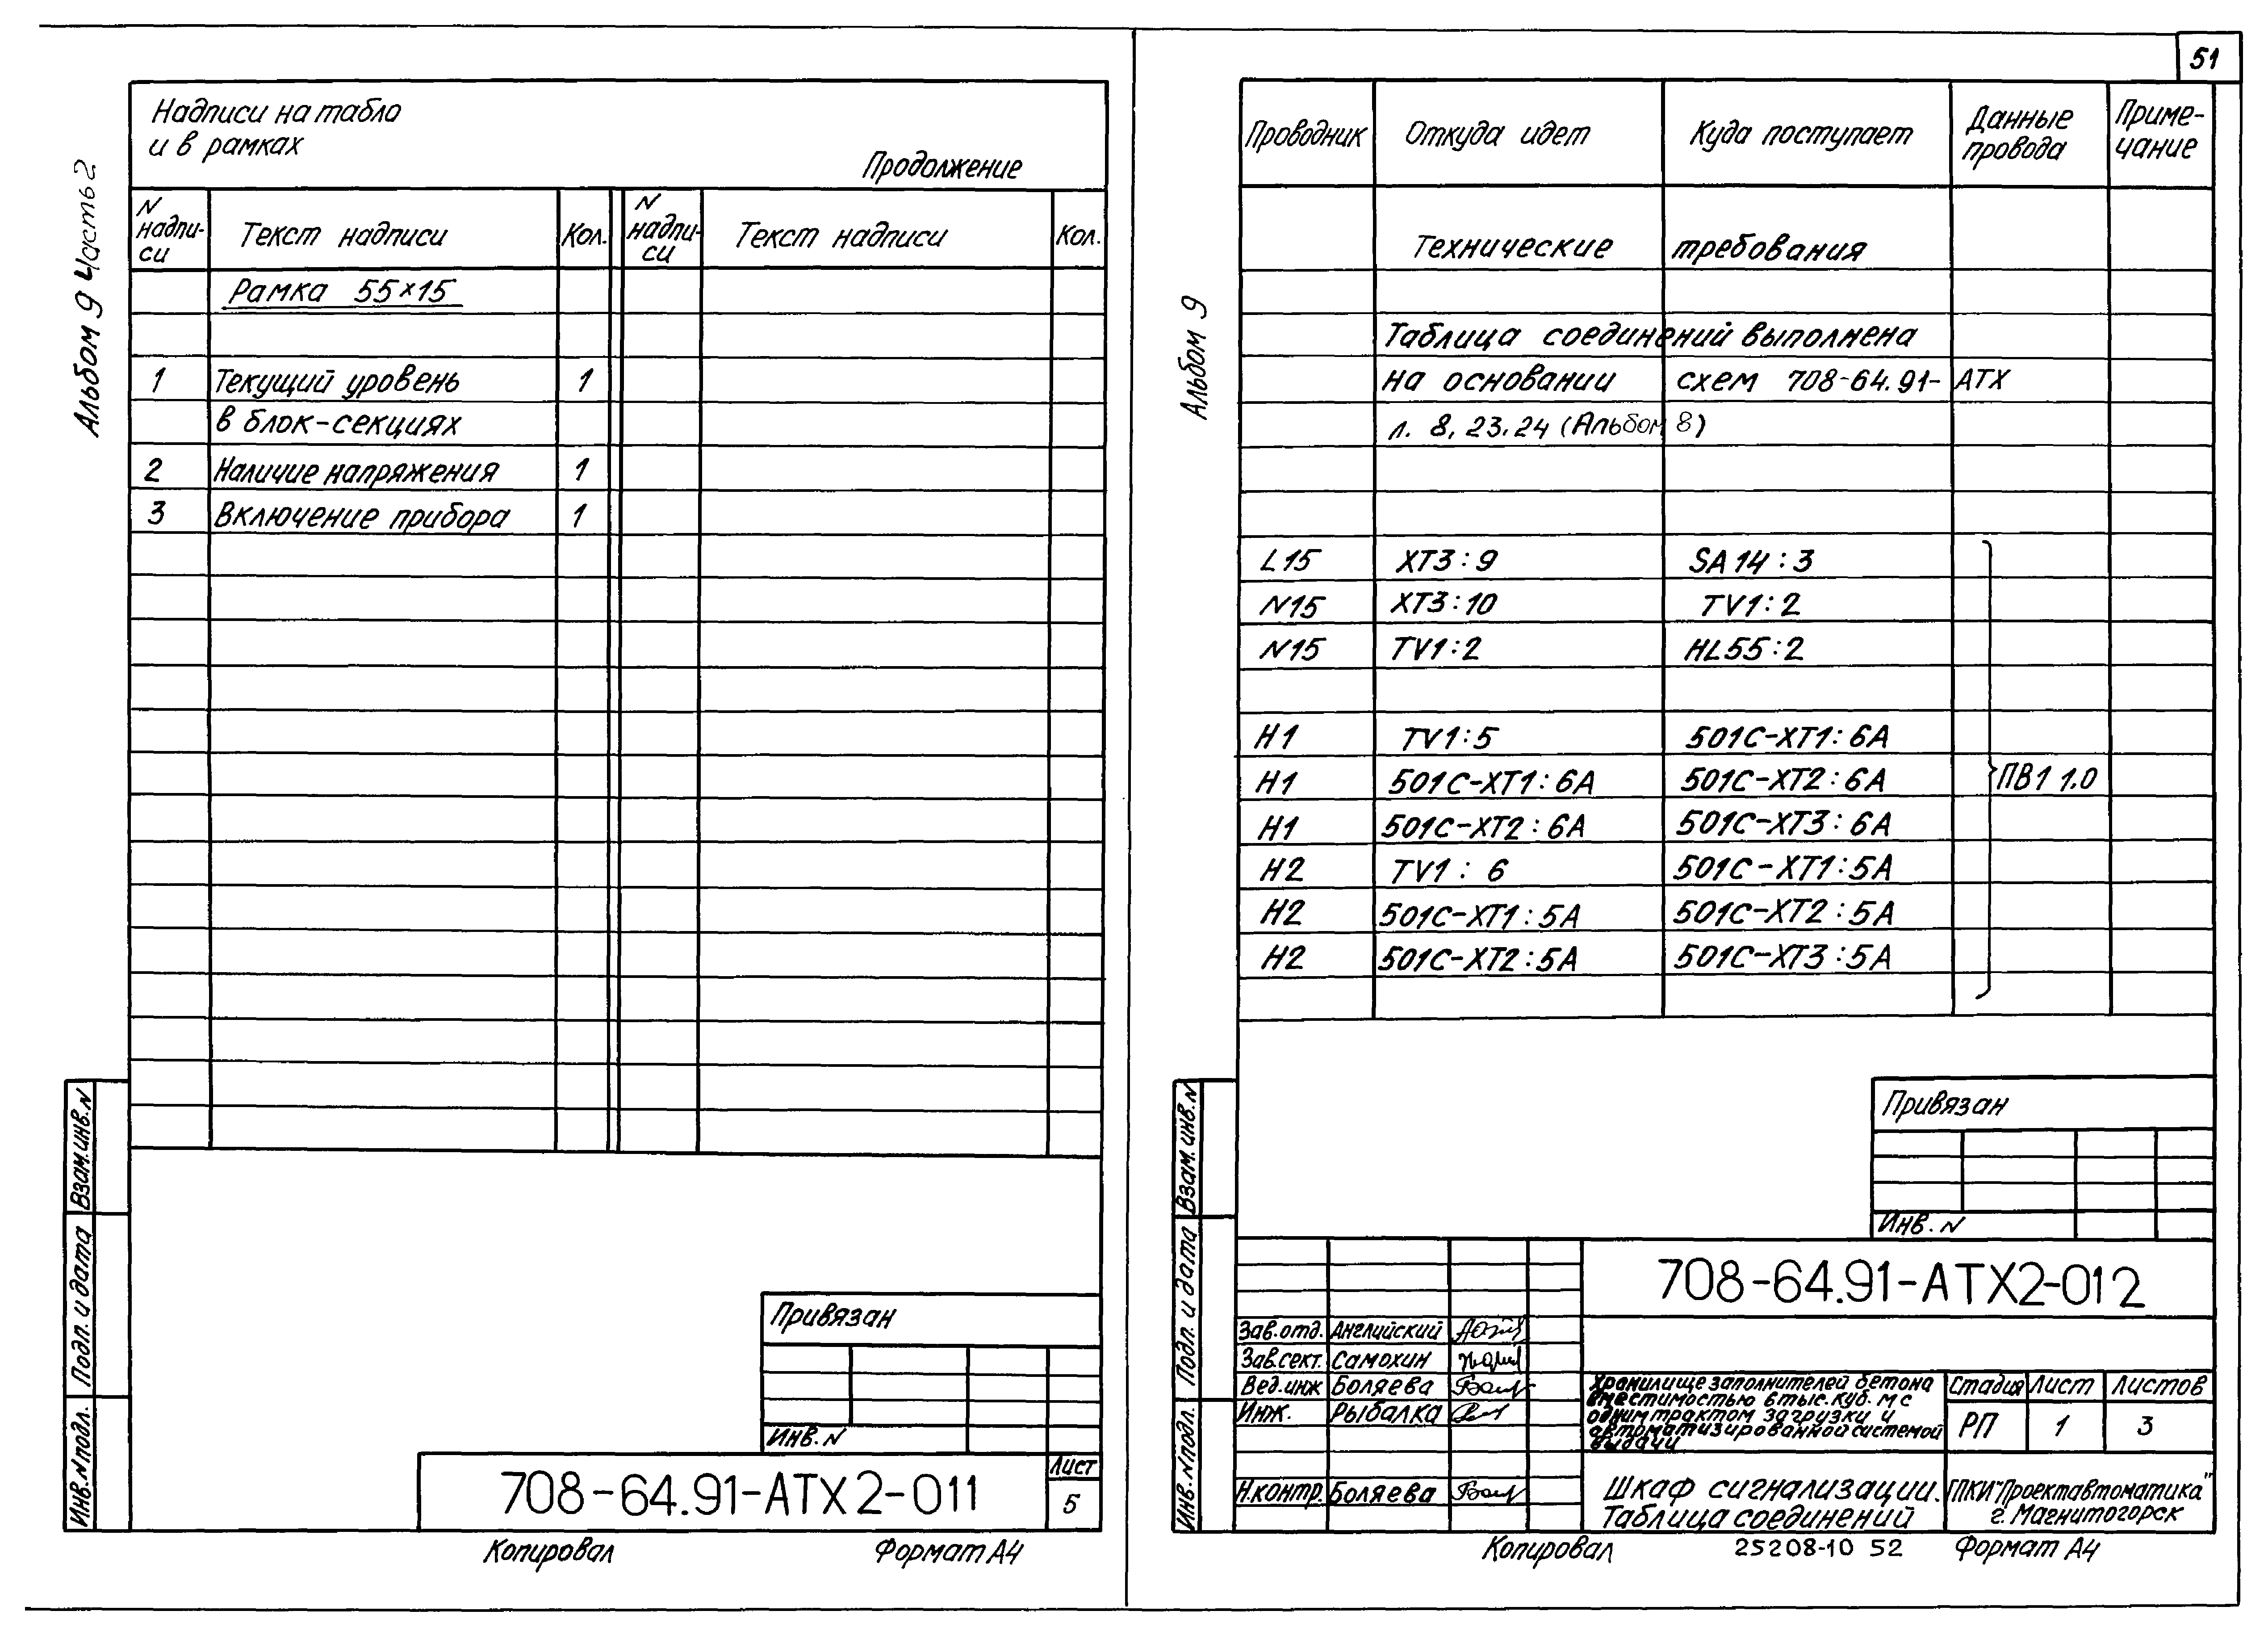 51
Альбом 9 Часть 2
Надписи на табло
и в рамках
Продолжение
N надпи-си | Текст надписи | Кол. | N надпи-си | Текст надписи | Кол.
Рамка 55×15
1 Текущий уровень 1
в блок-секциях
2 Наличие напряжения 1
3 Включение прибора 1
Взам. инв. N
Подп. и дата
Инв. N подл.
Привязан
Инв. N
708-64.91-АТХ2-011
Лист
5
Копировал Формат А4
Альбом 9
Проводник | Откуда идет | Куда поступает | Данные провода | Приме-чание
Технические требования
Таблица соединений выполнена
на основании схем 708-64.91-АТХ
л. 8, 23, 24 (Альбом 8)
L15 XT3:9 SA14:3
N15 XT3:10 TV1:2
N15 TV1:2 HL55:2
H1 TV1:5 501С-ХТ1:6А
H1 501С-ХТ1:6А 501С-ХТ2:6А ПВ1 1.0
H1 501С-ХТ2:6А 501С-ХТ3:6А
H2 TV1:6 501С-ХТ1:5А
H2 501С-ХТ1:5А 501С-ХТ2:5А
H2 501С-ХТ2:5А 501С-ХТ3:5А
Взам. инв. N
Подп. и дата
Инв. N подл.
Привязан
Инв. N
708-64.91-АТХ2-012
Зав. отд. Английский
Зав. сект. Самохин
Вед. инж Боляева
Инж. Рыбалка
Н.контр. Боляева
Хранилище заполнителей бетона
вместимостью 6 тыс. куб. м с
одним трактом загрузки и
автоматизированной системой
выдачи
Стадия Лист Листов
РП 1 3
Шкаф сигнализации.
Таблица соединений
ГПКИ "Проектавтоматика"
г. Магнитогорск
Копировал 25208-10 52 Формат А4